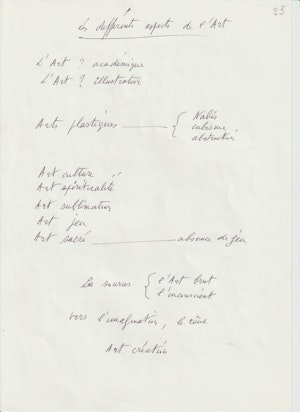 23
Les différents aspects de l'Art
L'Art ? académique
L'Art ? illustration
Arts plastiques { Nabis
cubisme
abstraction
Art culture
Art spiritualité
Art sublimation
Art jeu
Art sacré absence de jeu
Les sources { l'Art brut
l'inconscient
vers l'imagination, le rêve
Art création